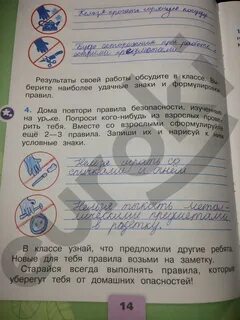 Нельзя трогать горячую посуду.
Будь осторожен при работе с
острыми предметами
Результаты своей работы обсудите в классе. Вы-
берите наиболее удачные знаки и формулировки
правил.
4. Дома повтори правила безопасности, изученные
на уроке. Попроси кого-нибудь из взрослых прове-
рить тебя. Вместе со взрослыми сформулируйте
ещё 2—3 правила. Запиши их и нарисуй к ним
условные знаки.
Нельзя играть со
спичками и огнём
Нельзя тыкать метал-
лическими предметами
в розетку.
В классе узнай, что предложили другие ребята.
Новые для тебя правила возьми на заметку.
Старайся всегда выполнять правила, которые
уберегут тебя от домашних опасностей!
14